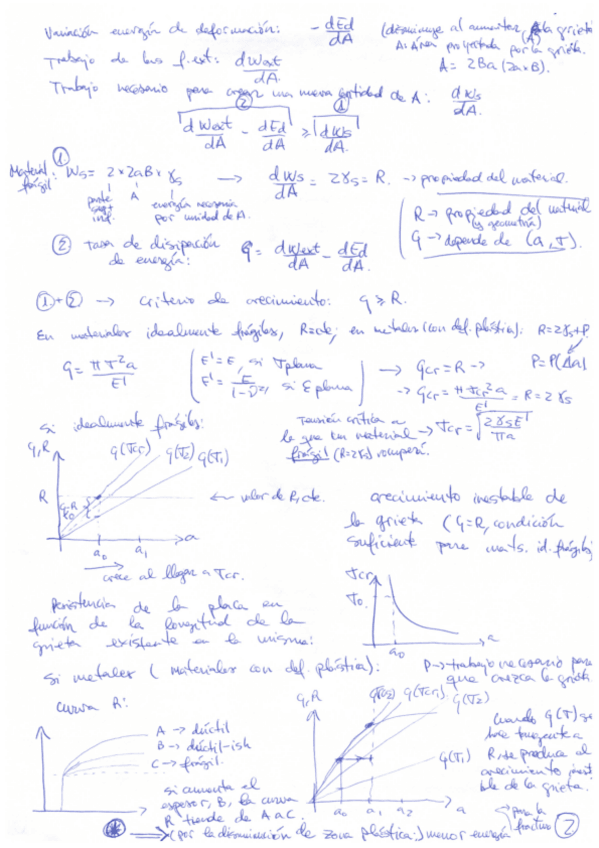 Variación energía de deformación: - dEd/dA (disminuye al aumentar la grieta (A)
A: Área proyectada por la grieta.
Trabajo de las f. ext: dWext/dA
A = 2Ba (2a×B).
Trabajo necesario para crear una nueva cantidad de A: dWs/dA.
② ①
dWext/dA - dEd/dA ≥ dWs/dA.
Material frágil: ① Ws = 2×2aB×γs → dWs/dA = 2γs = R. → propiedad del material.
A energía necesaria por unidad de A.
② Tasa de disipación de energía: G = dWext/dA - dEd/dA.
R → propiedad del material (y geometría)
G → depende de (a, σ).
①+② → criterio de crecimiento: G ≥ R.
En materiales idealmente frágiles, R=cte; en metales (con def. plástica): R=2γs+P.
P=P(Δa)
G = πσ²a/E'
E'=E, si σ plana
E'=E/(1-ν²), si ε plana
→ Gcr=R →
→ Gcr = πσcr²a/E' = R = 2γs
Si idealmente frágiles:
Tensión crítica a la que un material frágil (R=2γs) romperá. → σcr = √(2γsE'/πa)
G,R G(σcr) G(σ2) G(σ1)
R ← valor de R, cte.
a0 a1 a
crece al llegar a σcr.
crecimiento inestable de la grieta (G=R, condición suficiente para mats. id. frágiles)
Resistencia de la placa en función de la longitud de la grieta existente en la misma:
σcr
σ0.
a0 a
Si metales (materiales con def. plástica):
P → trabajo necesario para que crezca la grieta
curva R:
A → dúctil
B → dúctil-ish
C → frágil.
si aumenta el espesor, B, la curva R tiende de A a C.
G,R G(σcr) G(σ2)
G(σ1)
a0 a1 a2 a
Cuando G(σ) se hace tangente a R, se produce el crecimiento inestable de la grieta.
⊛ ⇒ (por la disminución de zona plástica:) menor energía para la fractura
②